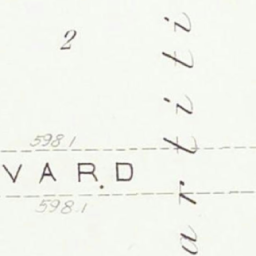 2
598.1
VARD
598.1
artiti